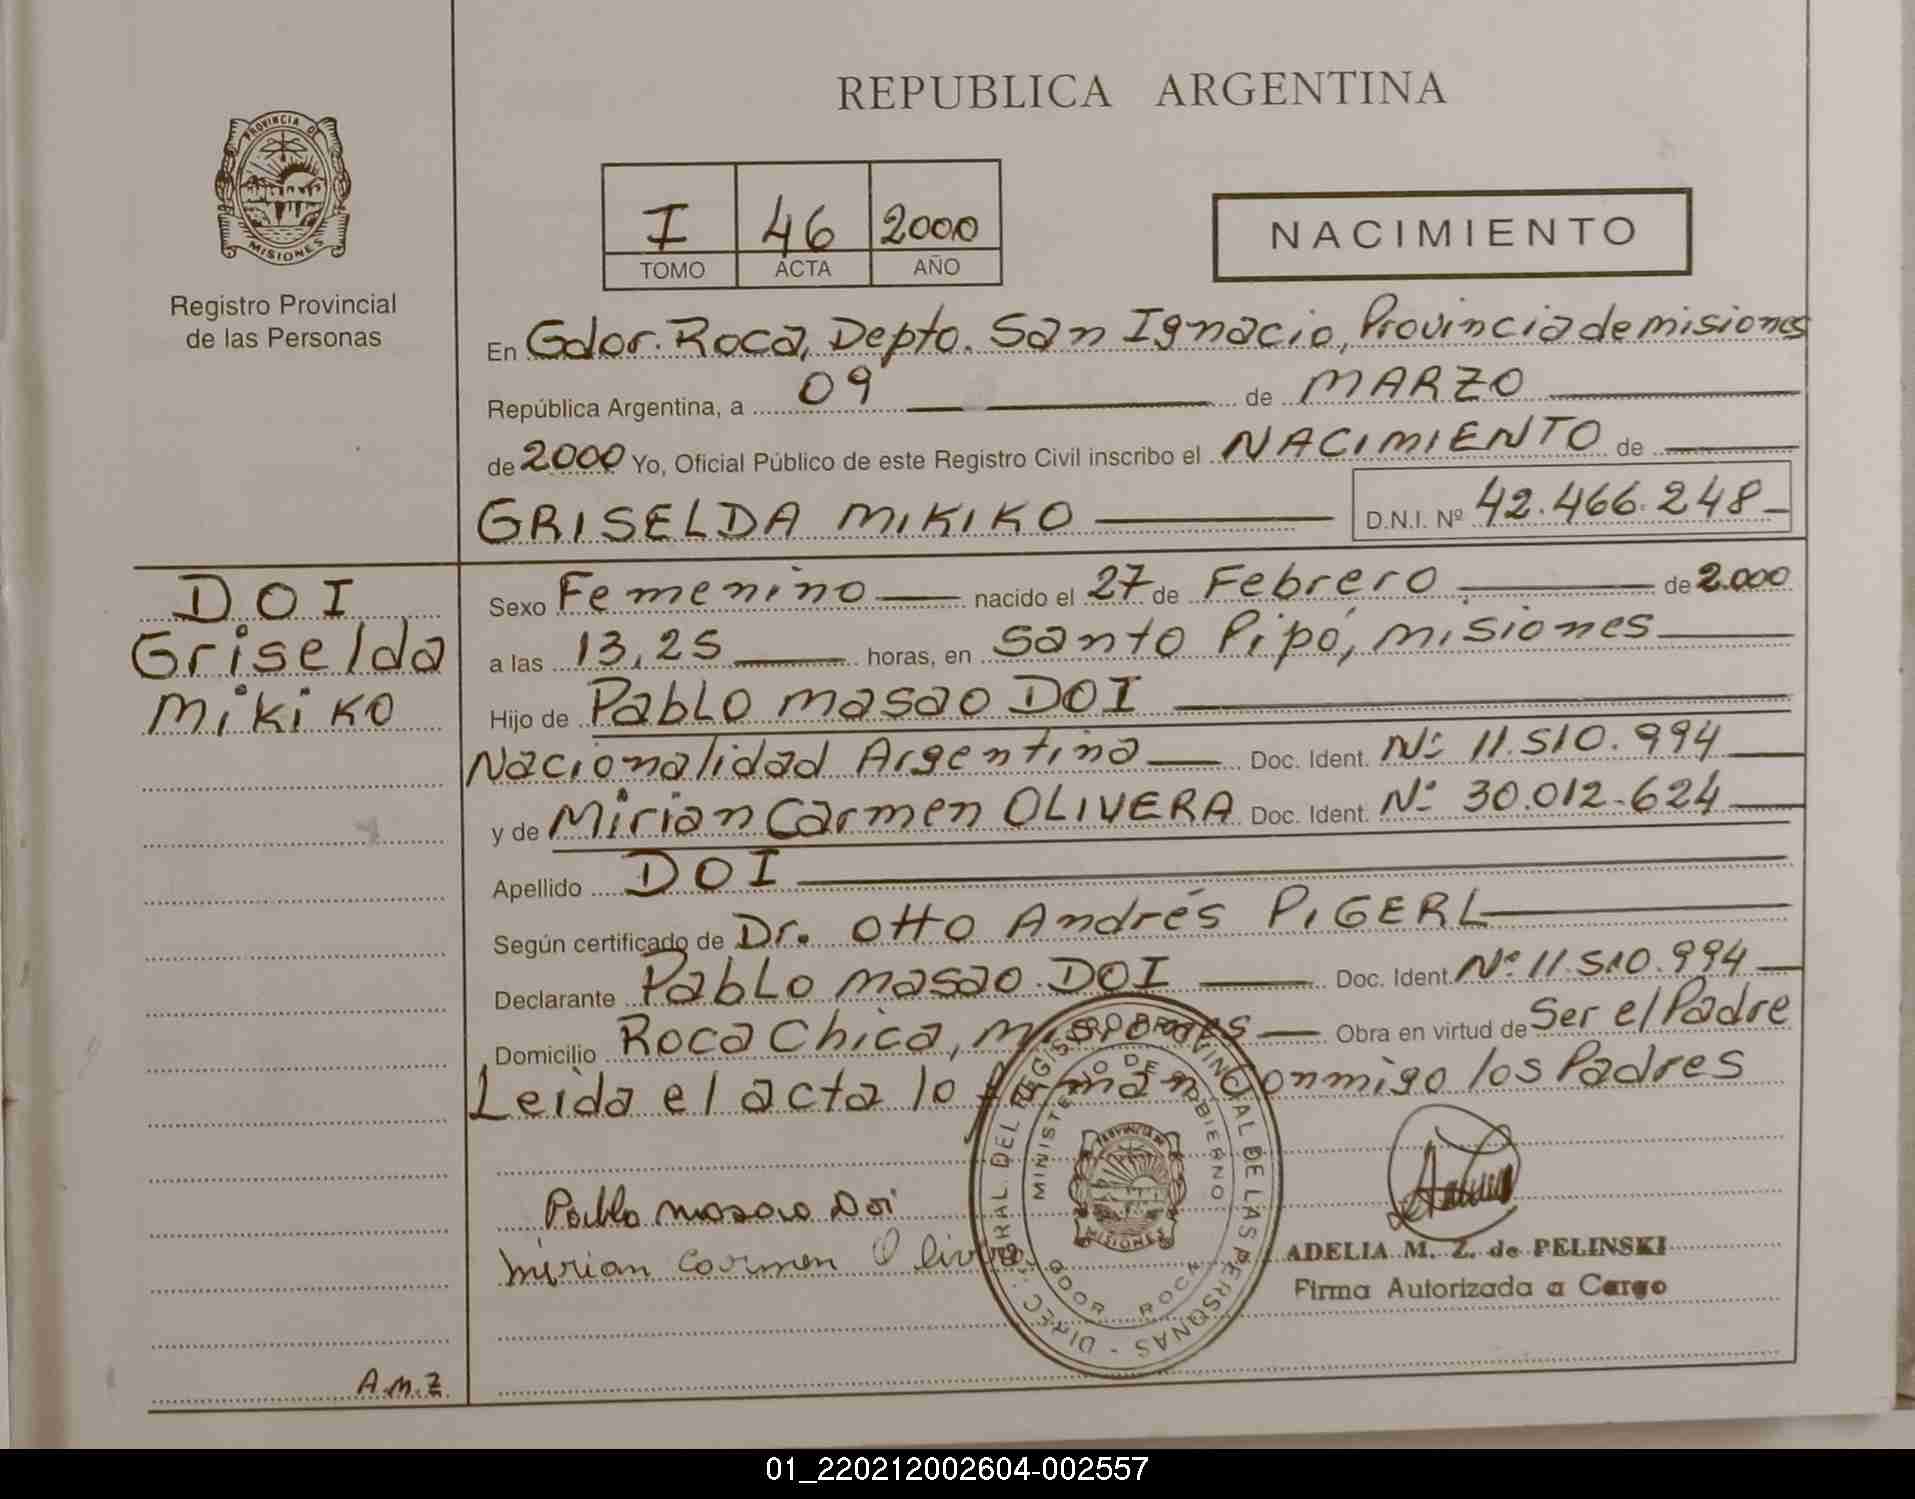 REPUBLICA ARGENTINA
PROVINCIA DE
MISIONES
Registro Provincial
de las Personas
I 46 2000
TOMO ACTA AÑO
NACIMIENTO
En Gdor. Roca, Depto. San Ignacio, Provincia de misiones
República Argentina, a 09 de MARZO
de 2000 Yo, Oficial Público de este Registro Civil inscribo el NACIMIENTO de
GRISELDA MIKIKO D.N.I. Nº 42.466.248
DOI
Griselda
Mikiko
Sexo Femenino nacido el 27 de Febrero de 2.000
a las 13,25 horas, en Santo Pipó, misiones
Hijo de Pablo masao DOI
Nacionalidad Argentina Doc. Ident. Nº 11.510.994
y de Mirian Carmen OLIVERA Doc. Ident. Nº 30.012.624
Apellido DOI
Según certificado de Dr. Otto Andrés PIGERL
Declarante Pablo masao DOI Doc. Ident. Nº 11.510.994
Domicilio Roca Chica, Misiones Obra en virtud de Ser el Padre
Leída el acta lo firman conmigo los Padres
Pablo Masao Doi
Mirian Carmen Olivera
DIREC. GRAL. DEL REGISTRO PROVINCIAL DE LAS PERSONAS
MINISTERIO DE GOBIERNO
PROVINCIA DE
MISIONES
GDOR. ROCA
ADELIA M. Z. de PELINSKI
Firma Autorizada a Cargo
A.M.Z.
01_220212002604-002557